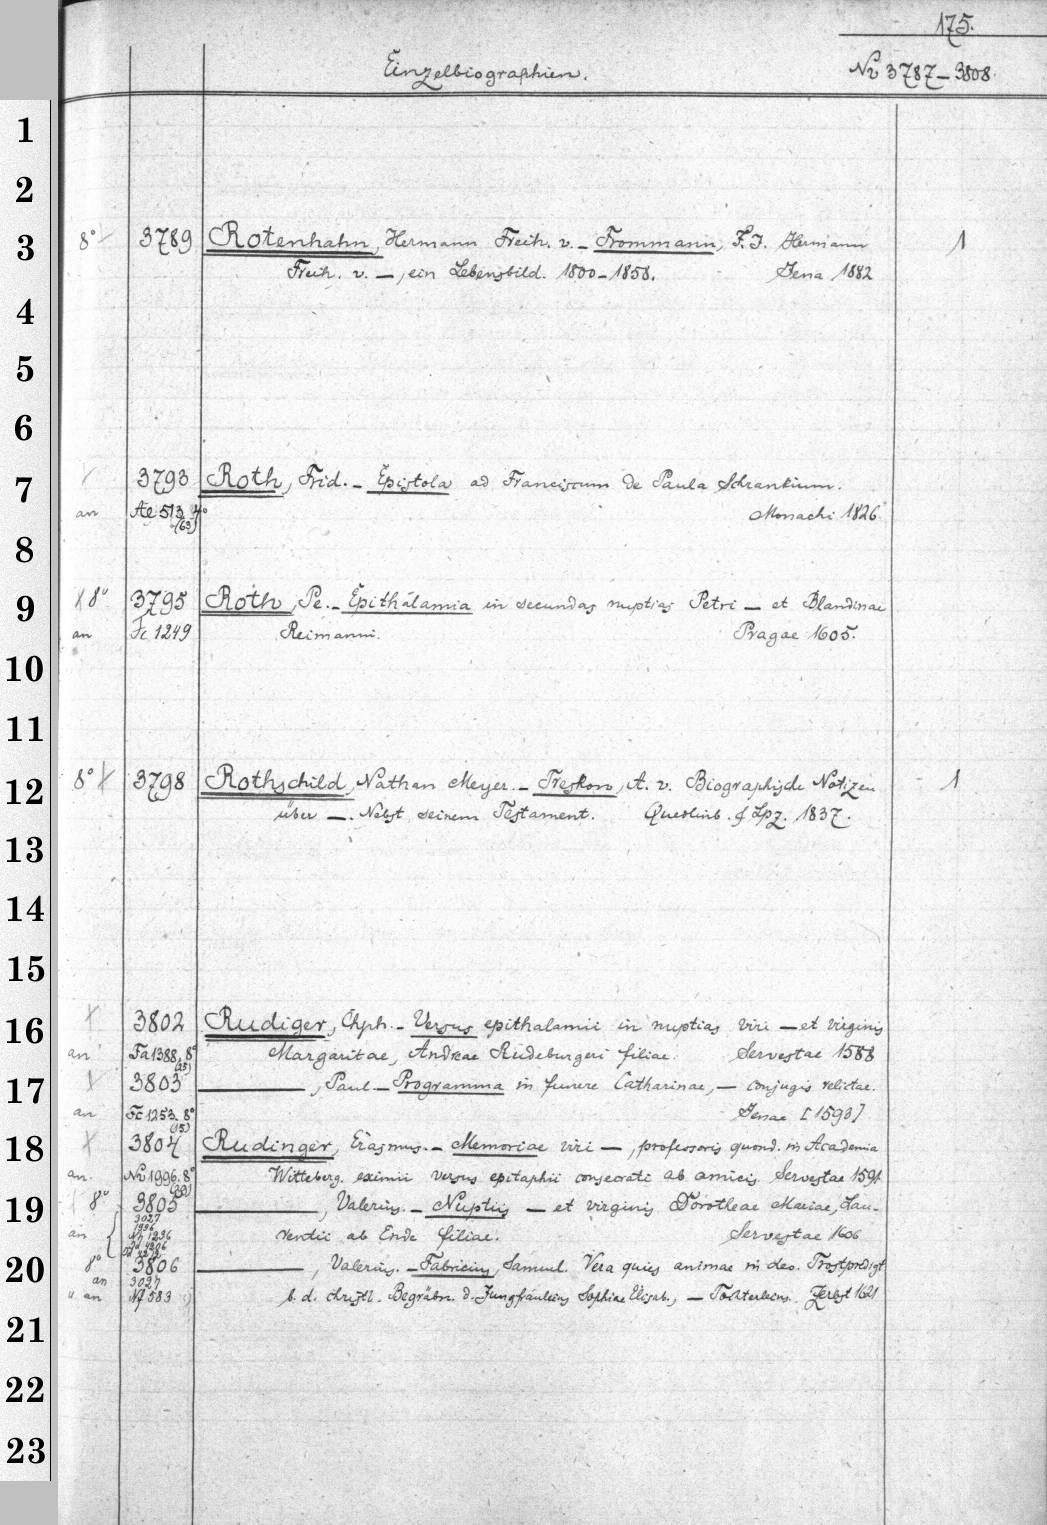 175.
Einzelbiographien. No 3787–3808.
1
2
3 8° 3789 Rotenhahn, Hermann Freih. v. – Frommann, F. J. Hermann 1
Freih. v. —, ein Lebensbild. 1800–1858. Jena 1882
4
5
6
7 3793 Roth, Frid. – Epistola ad Franciscum de Paula Schrankium.
an Ae 513 4° (63) Monachi 1826
8
9 8° 3795 Roth, Pe. – Epithalamia in secundas nuptias Petri — et Blandinae
an Fc 1249 Reimanni. Pragae 1605.
10
11
12 8° 3798 Rothschild, Nathan Meyer. – Treskow, A. v. Biographische Notizen 1
über —. Nebst seinem Testament. Quedlinb. & Lpz. 1837.
13
14
15
16 3802 Rudiger, Chph. – Versus epithalamii in nuptias viri — et virginis
an Fa 1388. 8° Margaritae, Andreae Rudeburgeri filiae. Servestae 1588
17 3803 ———, Paul – Programma in funere Catharinae, — conjugis relictae.
an Fc 1253. 8° (15) Jenae [1593]
18 3804 Rudinger, Erasmus. – Memoriae viri —, professoris quond. in Academia
an. Nv 1996. 8° Witteberg. eximii versus epitaphii consecrati ab amicis. Servestae 1591
19 8° 3805 ———, Valerius. – Nuptiis — et virginis Dorotheae Mariae, Lau-
an 3027 rentii ab Ende filiae. Servestae 1606
20 8° 3806 ———, Valerius. – Fabricius, Samuel. Vera quies animae in deo. Trostpredigt
an 3027
u an Nf 583 b. d. christl. Begräbn. d. Jungfräuleins Sophiae Elisab., — Töchterleins. Zerbst 1621
21
22
23